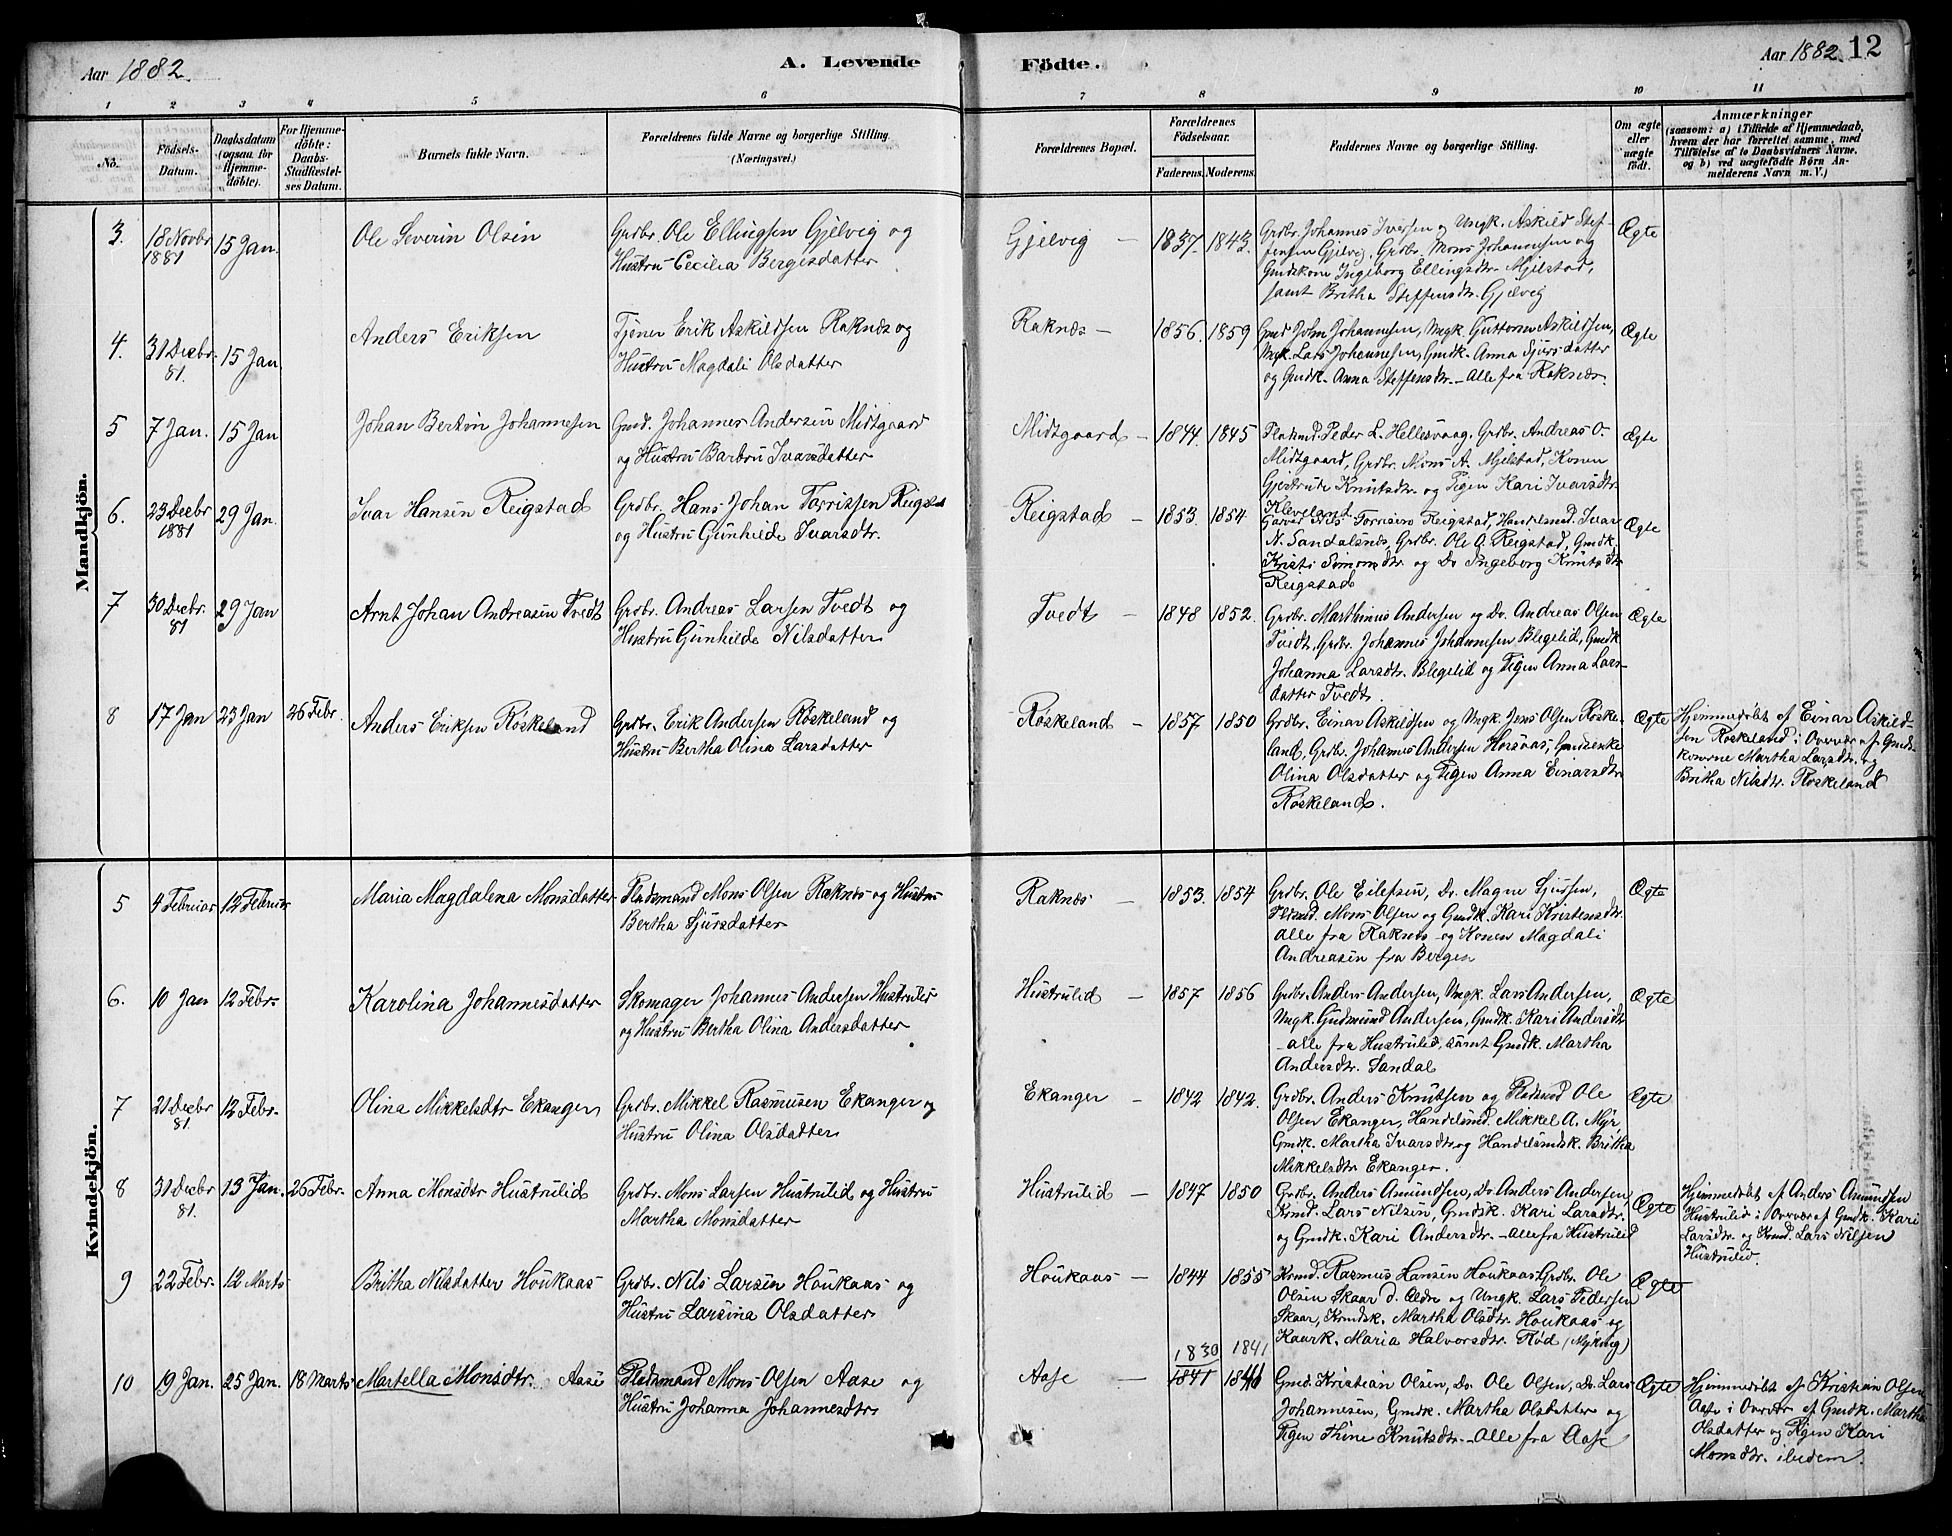 Aar 1882. A. Levende Födte. Aar 1882 12
1 2 3 4 5 6 7 8 9 10 11
No. Födsels-Datum. Daabsdatum (ogsaa for Hjemme-döbte). For Hjemme-döbte: Daabs-Stadfæstel-ses Datum. Barnets fulde Navn. Forældrenes fulde Navne og borgerlige Stilling. (Næringsvei.) Forældrenes Bopæl. Forældrenes Födselsaar. Faderens. Moderens. Faddernes Navne og borgerlige Stilling. Om ægte eller uægte født.
Anmærkninger
(saasom: a) i Tilfælde af Hjemmedaab,
hvem der har forrettet samme, med
Tilföielse af to Daabsvidners Navne,
og b) ved uægtefödte Börn An-
melderens Navn m. V.)
Mandkjön.
3. 18 Novbr 1881 15 Jan. Ole Severin Olsen
Grdbr. Ole Ellingsen Gjelvig og
Hustru Cecilia Bergesdatter
Gjelvig – 1837. 1843.
Grdbr. Johannes Iversen og Ungk. Askild Stef-
fensen Gjelvig, Grdbr. Mons Johannesen og
Gmdskone Ingeborg Ellingsdtr. Mjelstad,
samt Britha Steffensdtr. Gjelvig
Ægte
4. 31 Decbr. 81. 15 Jan Anders Eriksen
Tjener Erik Askildsen Raknæs og
Hustru Magdali Olsdatter
Raknæs – 1856. 1859
Gmd John Johannesen, Ungk. Guttorm Askildsen,
Ungk. Lars Johannesen, Gmdk. Anna Sjursdatter
og Gmdk. Anna Steffensdtr. – Alle fra Raknæs.
Ægte
5 7 Jan. 15 Jan Johan Bertin Johannesen
Gmd. Johannes Andersen Midtgaard
og Hustru Barbru Ivarsdatter
Midtgaard – 1844. 1845
Peder L. Hellesvaag, Grdbr. Andreas O.
Midtgaard, Grdbr. Mons A. Mjelstad, Konen
Gjertrude Knutsdtr. og Pigen Kari Ivarsdtr.
Kleveland
Ægte
6. 23 Decbr 1881 29 Jan. Ivar Hansen Reigstad
Grdbr. Hans Johan Torrissen Reigstad
og Hustru Gunhilde Ivarsdtr.
Reigstad – 1853. 1854
Garver Nils Reigstad, Handelsmd. Ivar
N. Sandalsnes, Grdbr. Ole O. Reigstad, Gmdk.
Kristi Simonsdtr. og Do Ingeborg Knutsdtr
Reigstad
Ægte
7 30 Decbr. 81 29 Jan Arnt Johan Andreasen Tvedt
Grdbr. Andreas Larsen Tvedt og
Hustru Gunhilde Nilsdatter
Tvedt – 1848 1852.
Grdbr. Marthinus Andersen og Do. Andreas Olsen
Tvedt, Grdbr. Johannes Johannesen Blegelid, Gmdk
Johanna Larsdtr. Blegelid og Pigen Anna Lars-
datter Tvedt.
Ægte
8 17 Jan 23 Jan 26 Febr. Anders Eriksen Röskeland
Grdbr. Erik Andersen Röskeland og
Hustru Bertha Olina Larsdatter
Röskeland – 1857 1850
Grdbr. Einar Askildsen og Ungk. Jens Olsen Röske-
land, Grdbr. Johannes Andersen Hosaas, Gmdsenke
Olina Olsdatter og Pigen Anna Einarsdtr
Röskeland.
Ægte
Hjemmedöbt af Einar Askild-
sen Röskeland i Overvær af Gmds-
konerne Martha Larsdtr. og
Britha Nilsdtr. Röskeland
Kvindekjön.
5 4 Februar 12 Februar Maria Magdalena Monsdatter
Pladsmand Mons Olsen Raknæs og Hustru
Bertha Sjursdatter
Raknæs – 1853. 1854
Grdbr. Ole Eilefsen, Do. Magne Sjursen,
Pladsmd. Mons Olsen og Gmdk. Kari Kristensdtr.
alle fra Raknæs og Konen Magdali
Andreasen fra Bergen
Ægte
6. 10 Jan 12 Febr. Karolina Johannesdatter
Skomager Johannes Andersen Hustrulid
og Hustru Bertha Olina Andersdatter
Hustrulid – 1857 1856
Grdbr. Anders Andersen, Ungk. Lars Andersen,
Ungk. Gudmund Andersen, Gmdk. Kari Andersdtr
– alle fra Hustrulid, samt Gmdk. Martha
Andersdtr. Sandal
Ægte
7 21 Decbr 81. 12 Febr. Olina Mikkelsdtr Ekanger
Grdbr. Mikkel Rasmusen Ekanger og
Hustru Olina Olsdatter
Ekanger – 1842 1842.
Grdbr. Anders Knutsen og Pladsmd Ole
Olsen Ekanger, Handelsmd. Mikkel A. Myr,
Gmdk. Martha Ivarsdtr. og Handelsmdsk. Britha
Mikkelsdtr Ekanger.
Ægte
8 31 Decbr 81. 13 Jan. 26 Febr. Anna Monsdtr Hustrulid
Grdbr. Mons Larsen Hustrulid og Hustru
Martha Monsdatter
Hustrulid – 1847 1850
Grdbr. Anders Amundsen, Do Anders Andersen
Krmd. Lars Nilsen, Gmdsk. Kari Larsdtr.
og Gmdk. Kari Andersdtr. – alle fra Hustrulid
Ægte
Hjemmedöbt af Anders Amundsen
Hustrulid i Overvær af Gmdk. Kari
Larsdtr. og Krmd. Lars Nilsen
Hustrulid.
9 22 Febr. 12 Marts Britha Nilsdatter Houkaas
Grdbr. Nils Larsen Houkaas og
Hustru Larsina Olsdatter
Houkaas – 1844 1855
Krmd. Rasmus Hansen Houkaas, Grdbr. Ole
Olsen Skaar d. Ældre og Ungk. Lars Pedersen
Skaar, Krmdsk. Martha Olsdtr. Houkaas og
Kaark. Maria Halvorsdtr. Röd (Myking)
Ægte
1830 1841
10 19 Jan. 25 Jan. 18 Marts Martella Monsdtr. Aase
Pladsmand Mons Olsen Aase og
Hustru Johanna Johannesdtr.
Aase – 1841 1846
Gmd. Kristian Olsen, Do. Ole Olsen, Do. Lars
Johannesen, Gmdk. Martha Olsdatter og
Pigen Thine Knutsdtr. – Alle fra Aase
Ægte
Hjemmedöbt af Kristian Olsen
Aase i Overvær af Gmdk. Martha
Olsdatter og Pigen Kari
Monsdtr. ibidem.